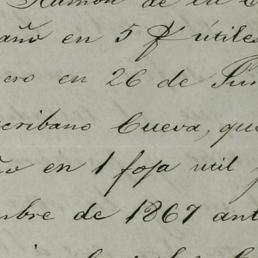 Ramon de la
año en 5 f útiles
ero en 26 de Jun
cribano Cueva, que
o en 1 foja util
mbre de 1867 ant